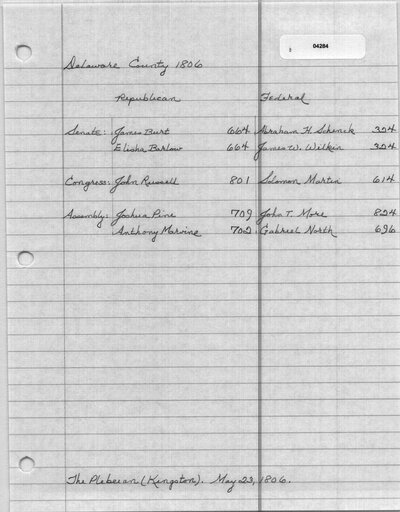 04284
Delaware County 1806
Republican Federal
Senate: James Burt 664 Abraham H. Schenck 324
Elisha Barlow 664 James W. Wilkin 324
Congress: John Russell 801 Solomon Martin 614
Assembly: Joshua Pine 709 John T. More 824
Anthony Marvine 702 Gabriel North 696
The Plebeian (Kingston). May 23, 1806.